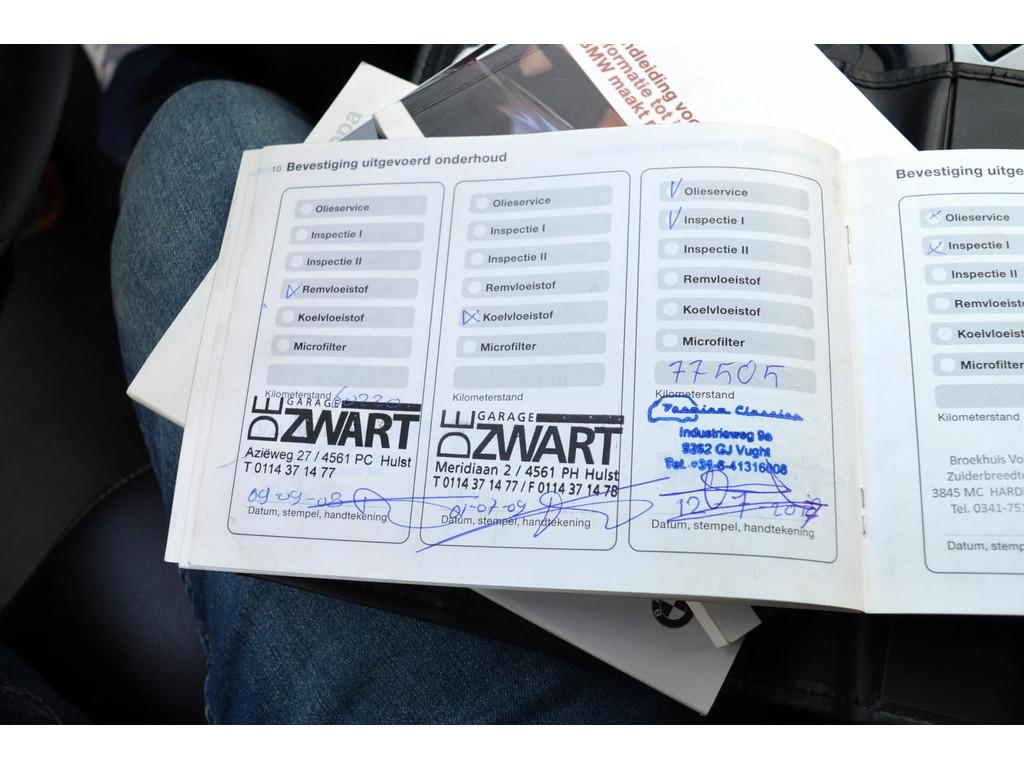 ndleiding voo
formatie tot
BMW maakt r
opa
10 Bevestiging uitgevoerd onderhoud
Olieservice
Inspectie I
Inspectie II
Remvloeistof
Koelvloeistof
Microfilter
Kilometerstand 60220
GARAGE
DE ZWART
Aziëweg 27 / 4561 PC Hulst
T 0114 37 14 77
09-09-08
Datum, stempel, handtekening
Olieservice
Inspectie I
Inspectie II
Remvloeistof
Koelvloeistof
Microfilter
Kilometerstand
GARAGE
DE ZWART
Meridiaan 2 / 4561 PH Hulst
T 0114 37 14 77 / F 0114 37 14 78
01-07-09
Datum, stempel, handtekening
Olieservice
Inspectie I
Inspectie II
Remvloeistof
Koelvloeistof
Microfilter
77505
Kilometerstand
Classics
Industrieweg 9a
GJ Vught
Tel. +31-6-41316008
12 7
Datum, stempel, handtekening
Bevestiging uitge
Olieservice
Inspectie I
Inspectie II
Remvloeistof
Koelvloeistof
Microfilter
Kilometerstand
Broekhuis Vol
Zuiderbreedte
3845 MC HARD
Tel. 0341-751
Datum, stemp